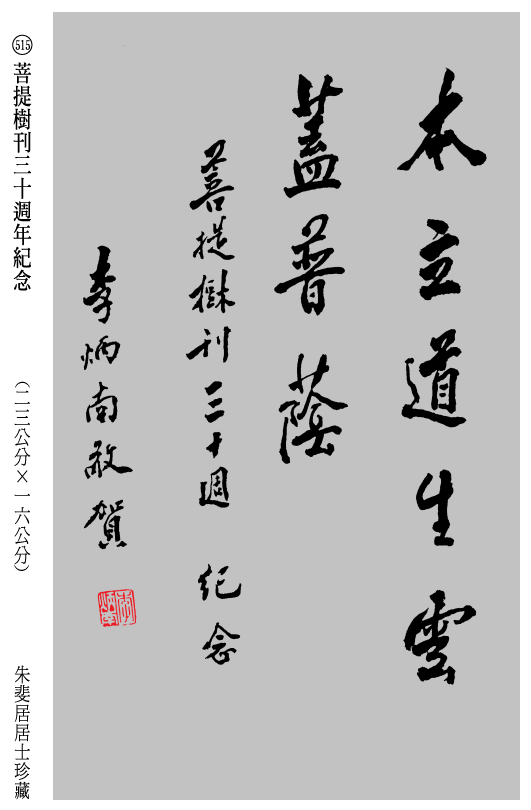 本立道生雲
蓋普蔭
菩提樹刊三十週 紀念
李炳南敬賀
515 菩提樹刊三十週年紀念
（二三公分×一六公分）
朱斐居居士珍藏